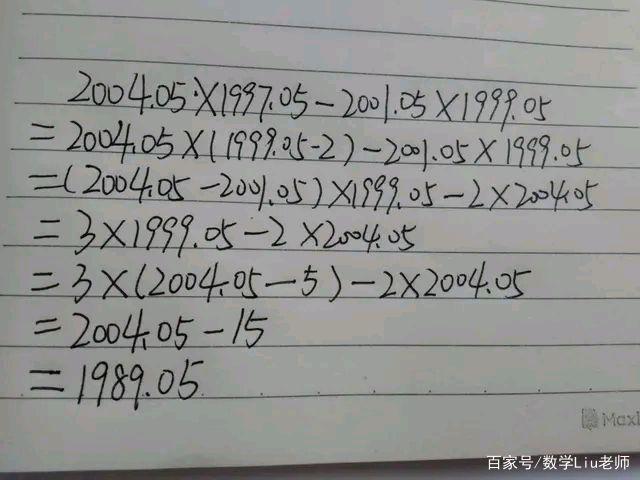 2004.05×1997.05-2001.05×1999.05
=2004.05×(1999.05-2)-2001.05×1999.05
=(2004.05-2001.05)×1999.05-2×2004.05
=3×1999.05-2×2004.05
=3×(2004.05-5)-2×2004.05
=2004.05-15
=1989.05
百家号/数学Liu老师